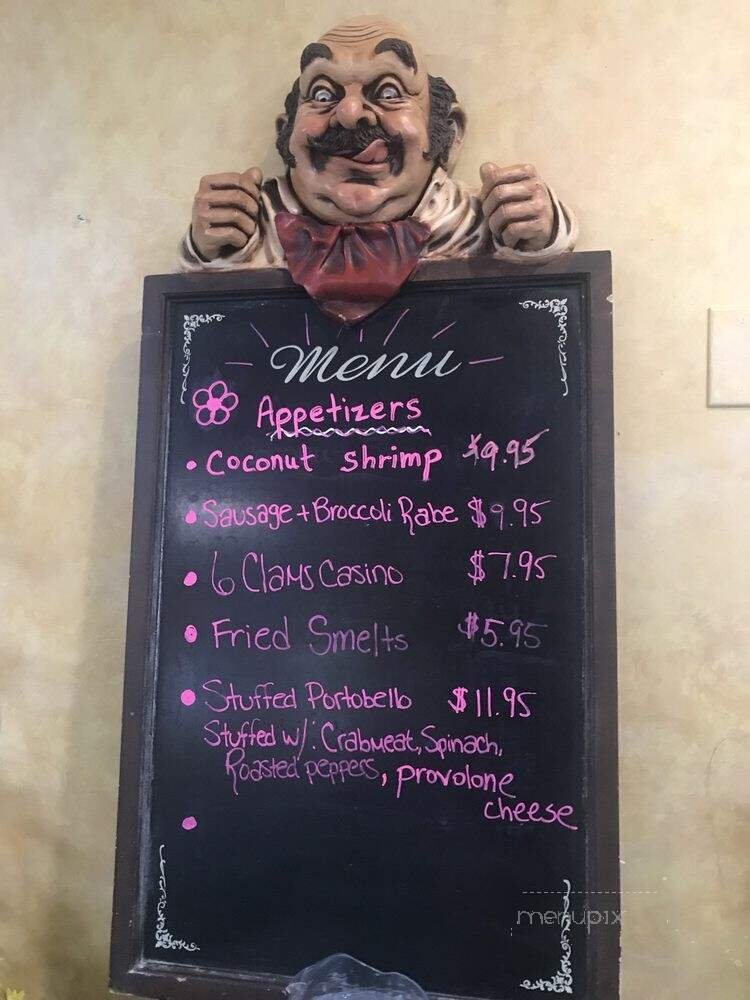 Menu
Appetizers
• Coconut shrimp $9.95
• Sausage + Broccoli Rabe $9.95
• 6 Clams Casino $7.95
• Fried Smelts $5.95
• Stuffed Portobello $11.95
Stuffed w/: Crabmeat, Spinach,
Roasted peppers, provolone
cheese
•
menupix